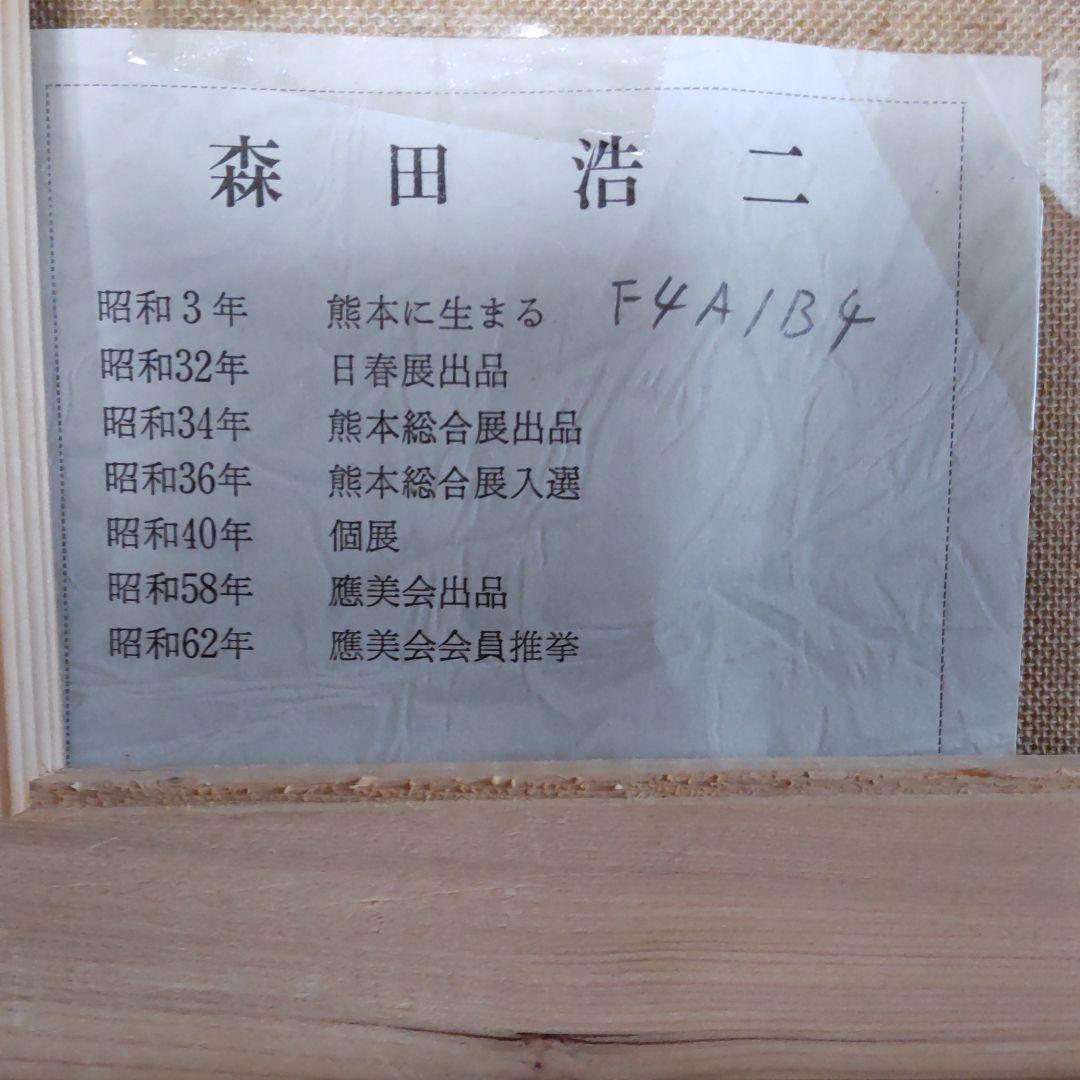 森田浩二
昭和3年 熊本に生まる F4A1B4
昭和32年 日春展出品
昭和34年 熊本総合展出品
昭和36年 熊本総合展入選
昭和40年 個展
昭和58年 應美会出品
昭和62年 應美会会員推挙